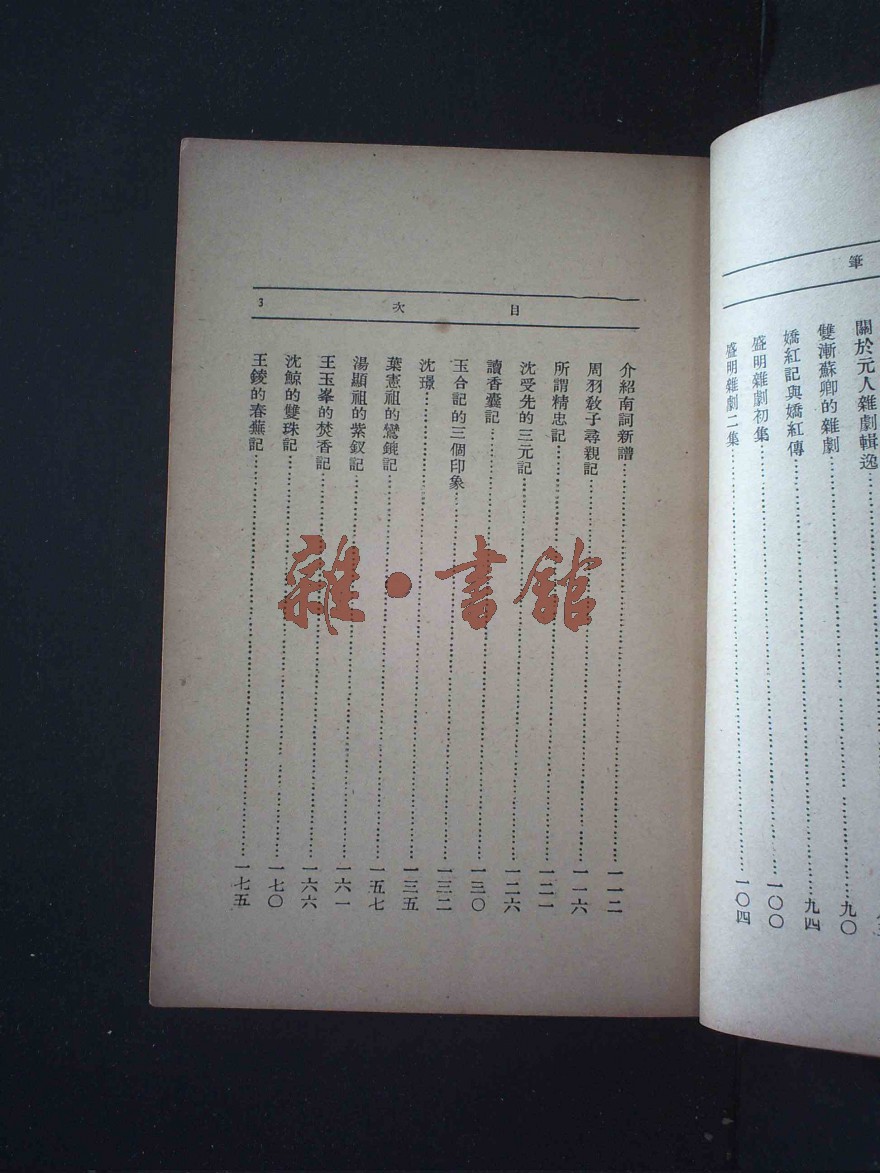 筆
關於元人雜劇輯逸
雙漸蘇卿的雜劇……九〇
嬌紅記與嬌紅傳……九四
盛明雜劇初集……一〇〇
盛明雜劇二集……一〇四
目次 3
介紹南詞新譜……一一二
周羽教子尋親記……一一六
所謂精忠記……一二一
沈受先的三元記……一二六
讀香囊記……一三〇
玉合記的三個印象……一三二
沈璟……一三五
葉憲祖的鸞鎞記……一五七
湯顯祖的紫釵記……一六一
王玉峯的焚香記……一六六
沈鯨的雙珠記……一七〇
王錂的春蕪記……一七五
雜·書館